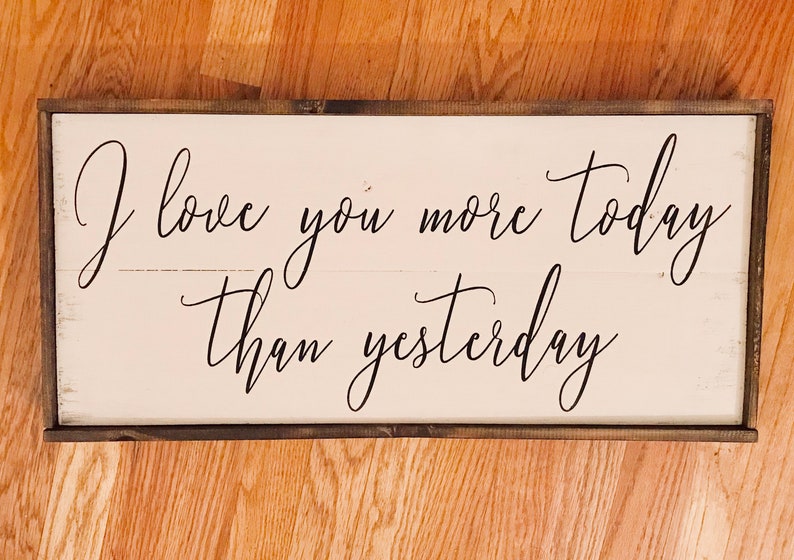 I love you more today
than yesterday